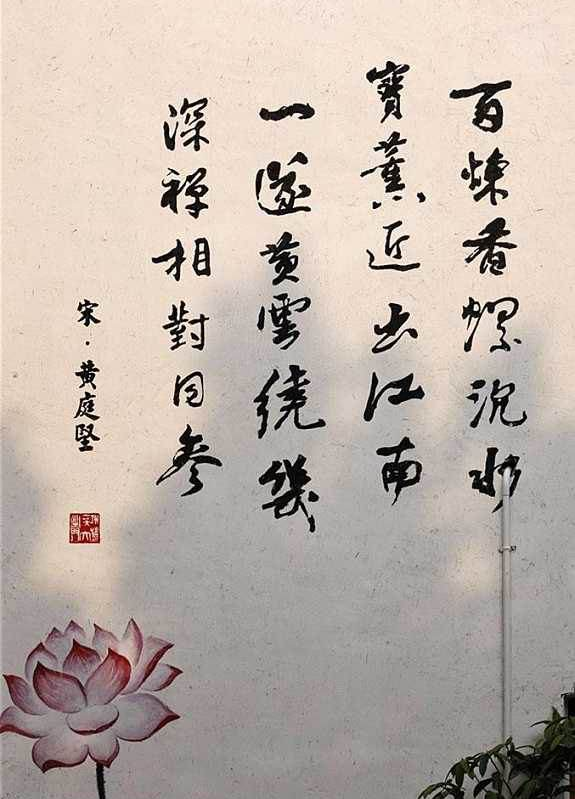 百煉香螺沉水
寶薰近出江南
一遂黄雲繞幾
深禪相對同參
宋·黄庭堅